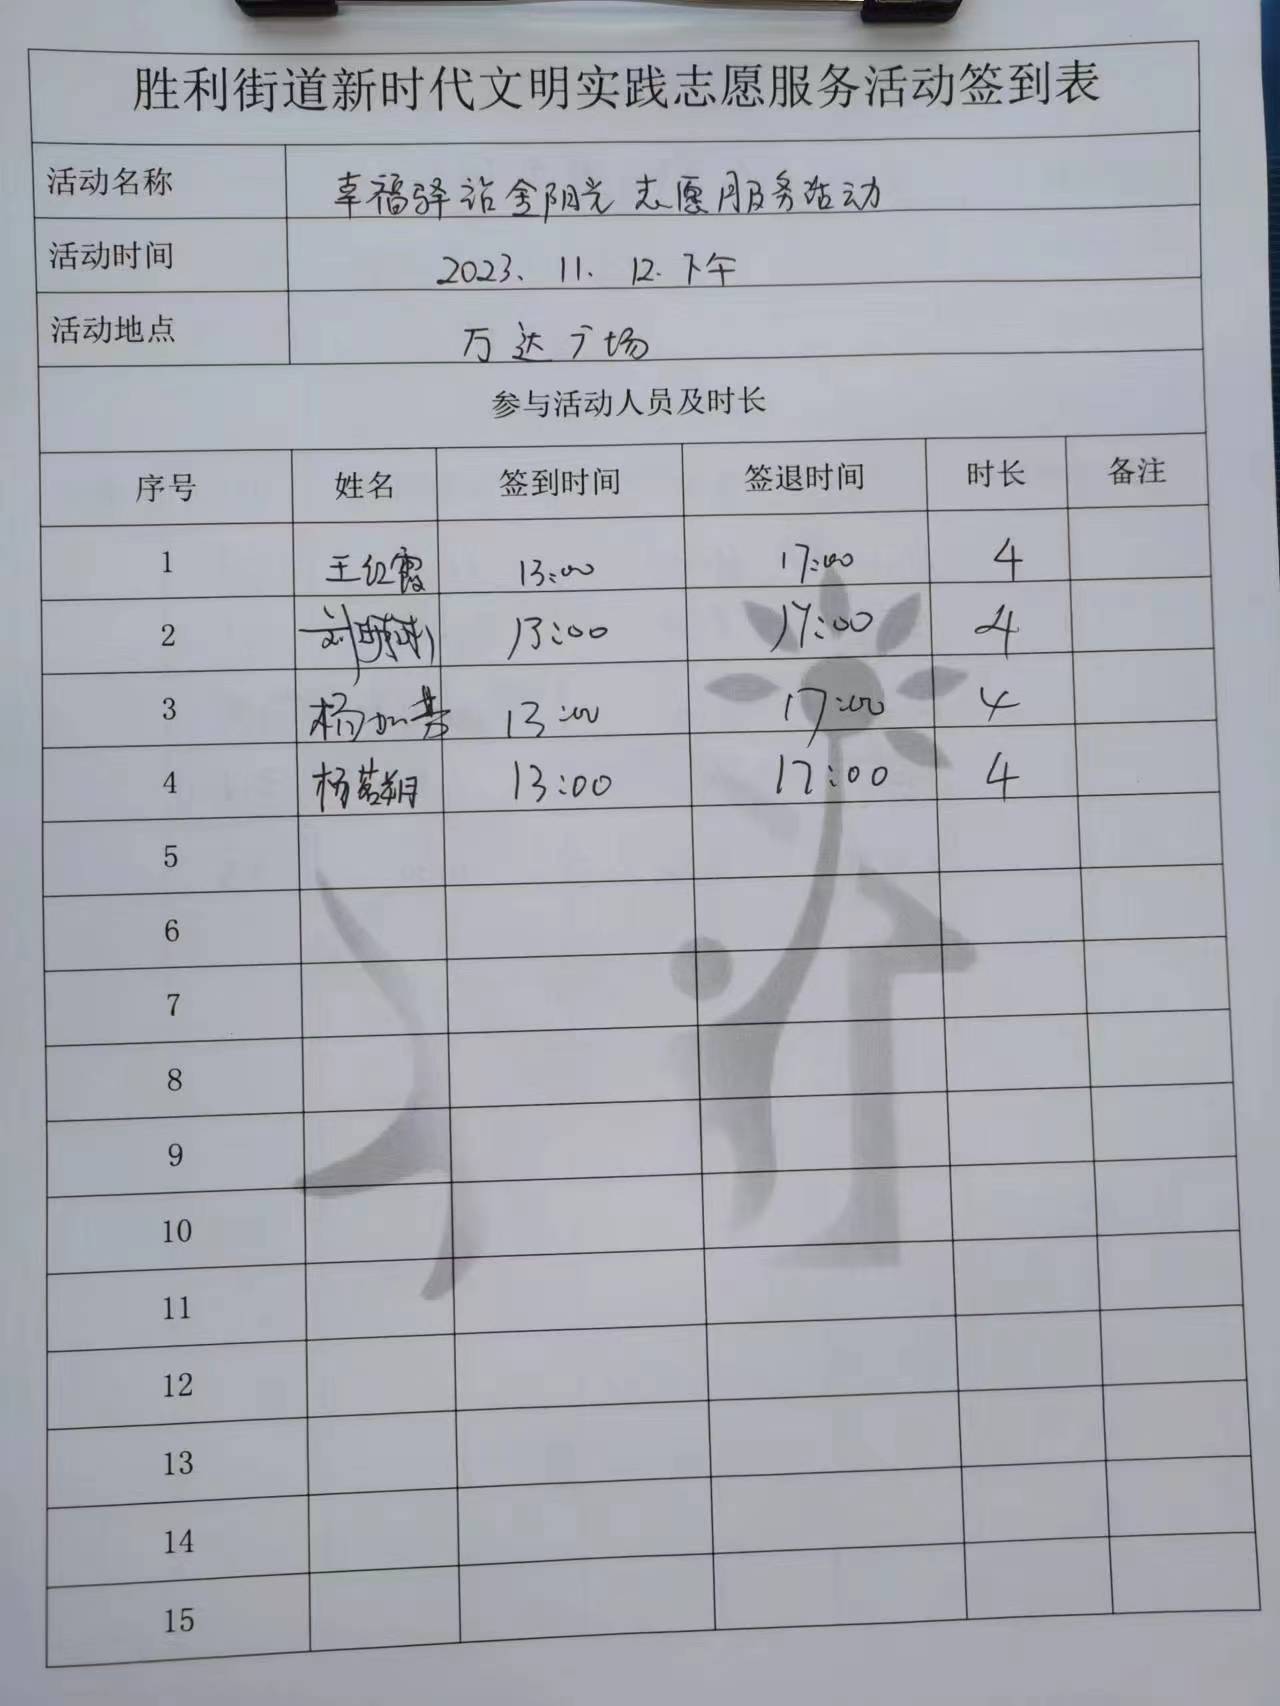 胜利街道新时代文明实践志愿服务活动签到表
活动名称 幸福驿站金阳光志愿服务活动
活动时间 2023. 11. 12. 下午
活动地点 万达广场
参与活动人员及时长
序号 姓名 签到时间 签退时间 时长 备注
1 王红霞 13:00 17:00 4
2 13:00 17:00 4
3 杨 13:00 17:00 4
4 杨茗朔 13:00 17:00 4
5
6
7
8
9
10
11
12
13
14
15